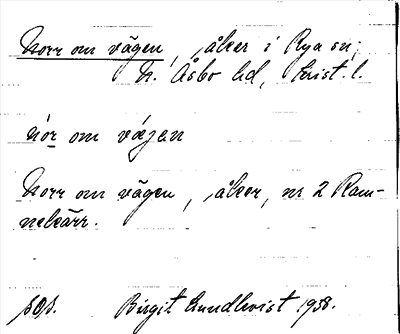 Norr om vägen, åker i Rya sn,
N. Åsbo hd, Krist. l.
nor om vægen
Norr om vägen, åker, nr 2 Ram-
nekärr.
Birgit Lundkvist 1938.